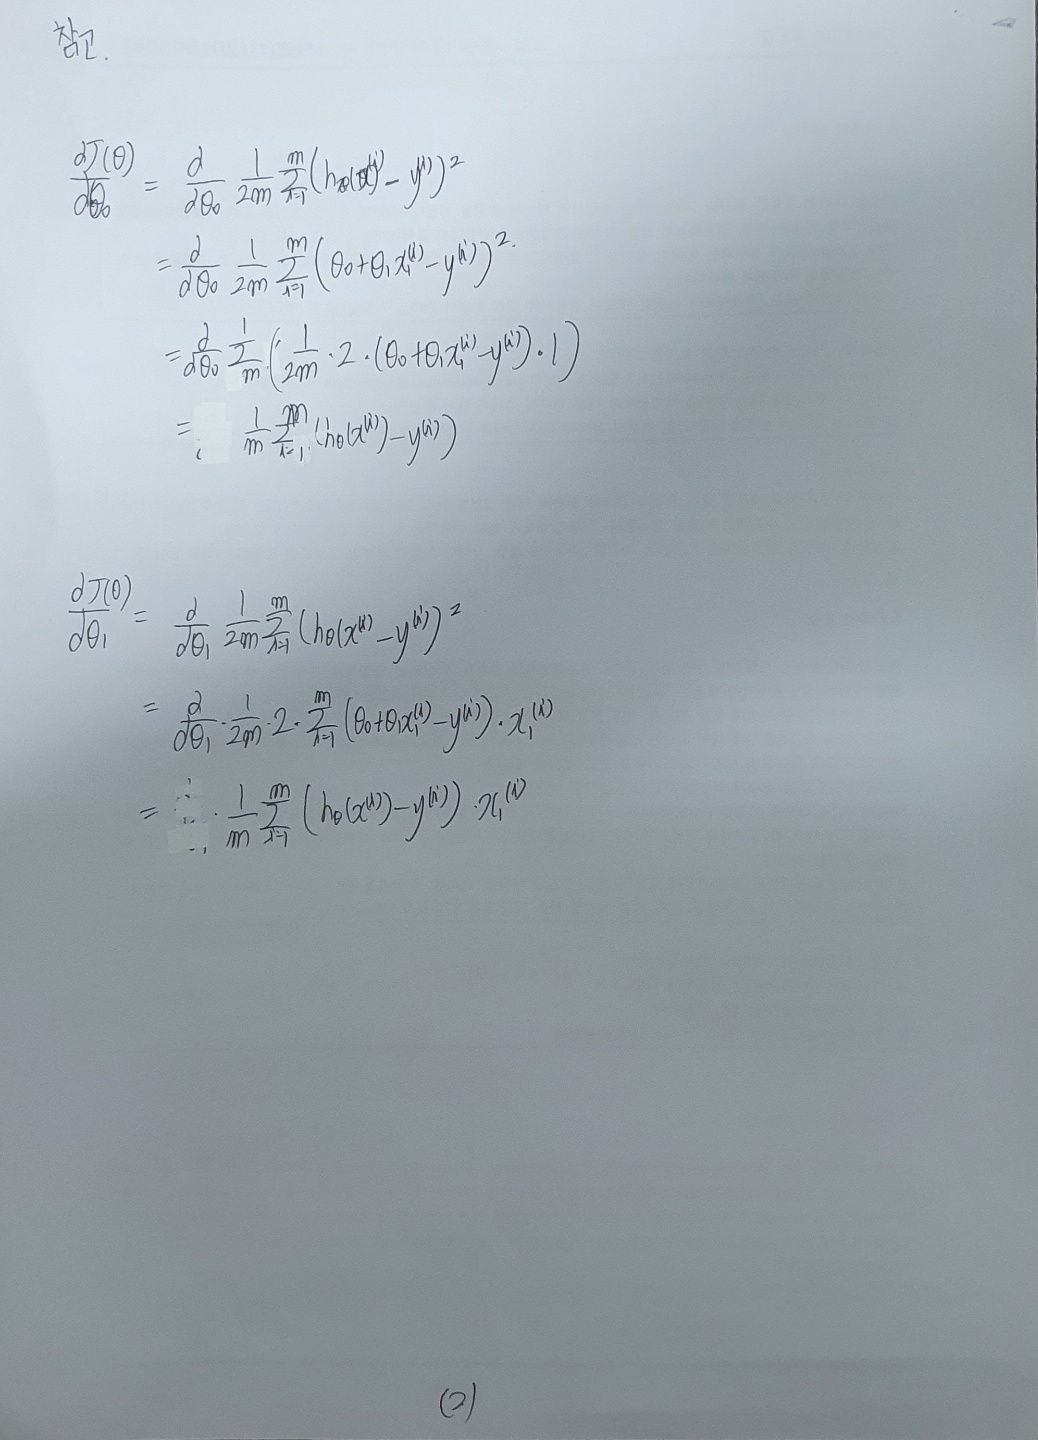 참고.
dJ(θ)/dθ₀ = d/dθ₀ 1/2m Σᵢ₌₁ᵐ (h_θ(x⁽ⁱ⁾) - y⁽ⁱ⁾)²
= d/dθ₀ 1/2m Σᵢ₌₁ᵐ (θ₀+θ₁x₁⁽ⁱ⁾-y⁽ⁱ⁾)².
= d/dθ₀ (1/2m · 2 · (θ₀+θ₁x₁⁽ⁱ⁾-y⁽ⁱ⁾) · 1)
= 1/m Σᵢ₌₁ᵐ (h_θ(x⁽ⁱ⁾)-y⁽ⁱ⁾)
dJ(θ)/dθ₁ = d/dθ₁ 1/2m Σᵢ₌₁ᵐ (h_θ(x⁽ⁱ⁾ - y⁽ⁱ⁾)²
= d/dθ₁ · 1/2m · 2 · Σᵢ₌₁ᵐ (θ₀+θ₁x₁⁽ⁱ⁾-y⁽ⁱ⁾) · x₁⁽ⁱ⁾
= · 1/m Σᵢ₌₁ᵐ (h_θ(x⁽ⁱ⁾)-y⁽ⁱ⁾) · x₁⁽ⁱ⁾
(2)